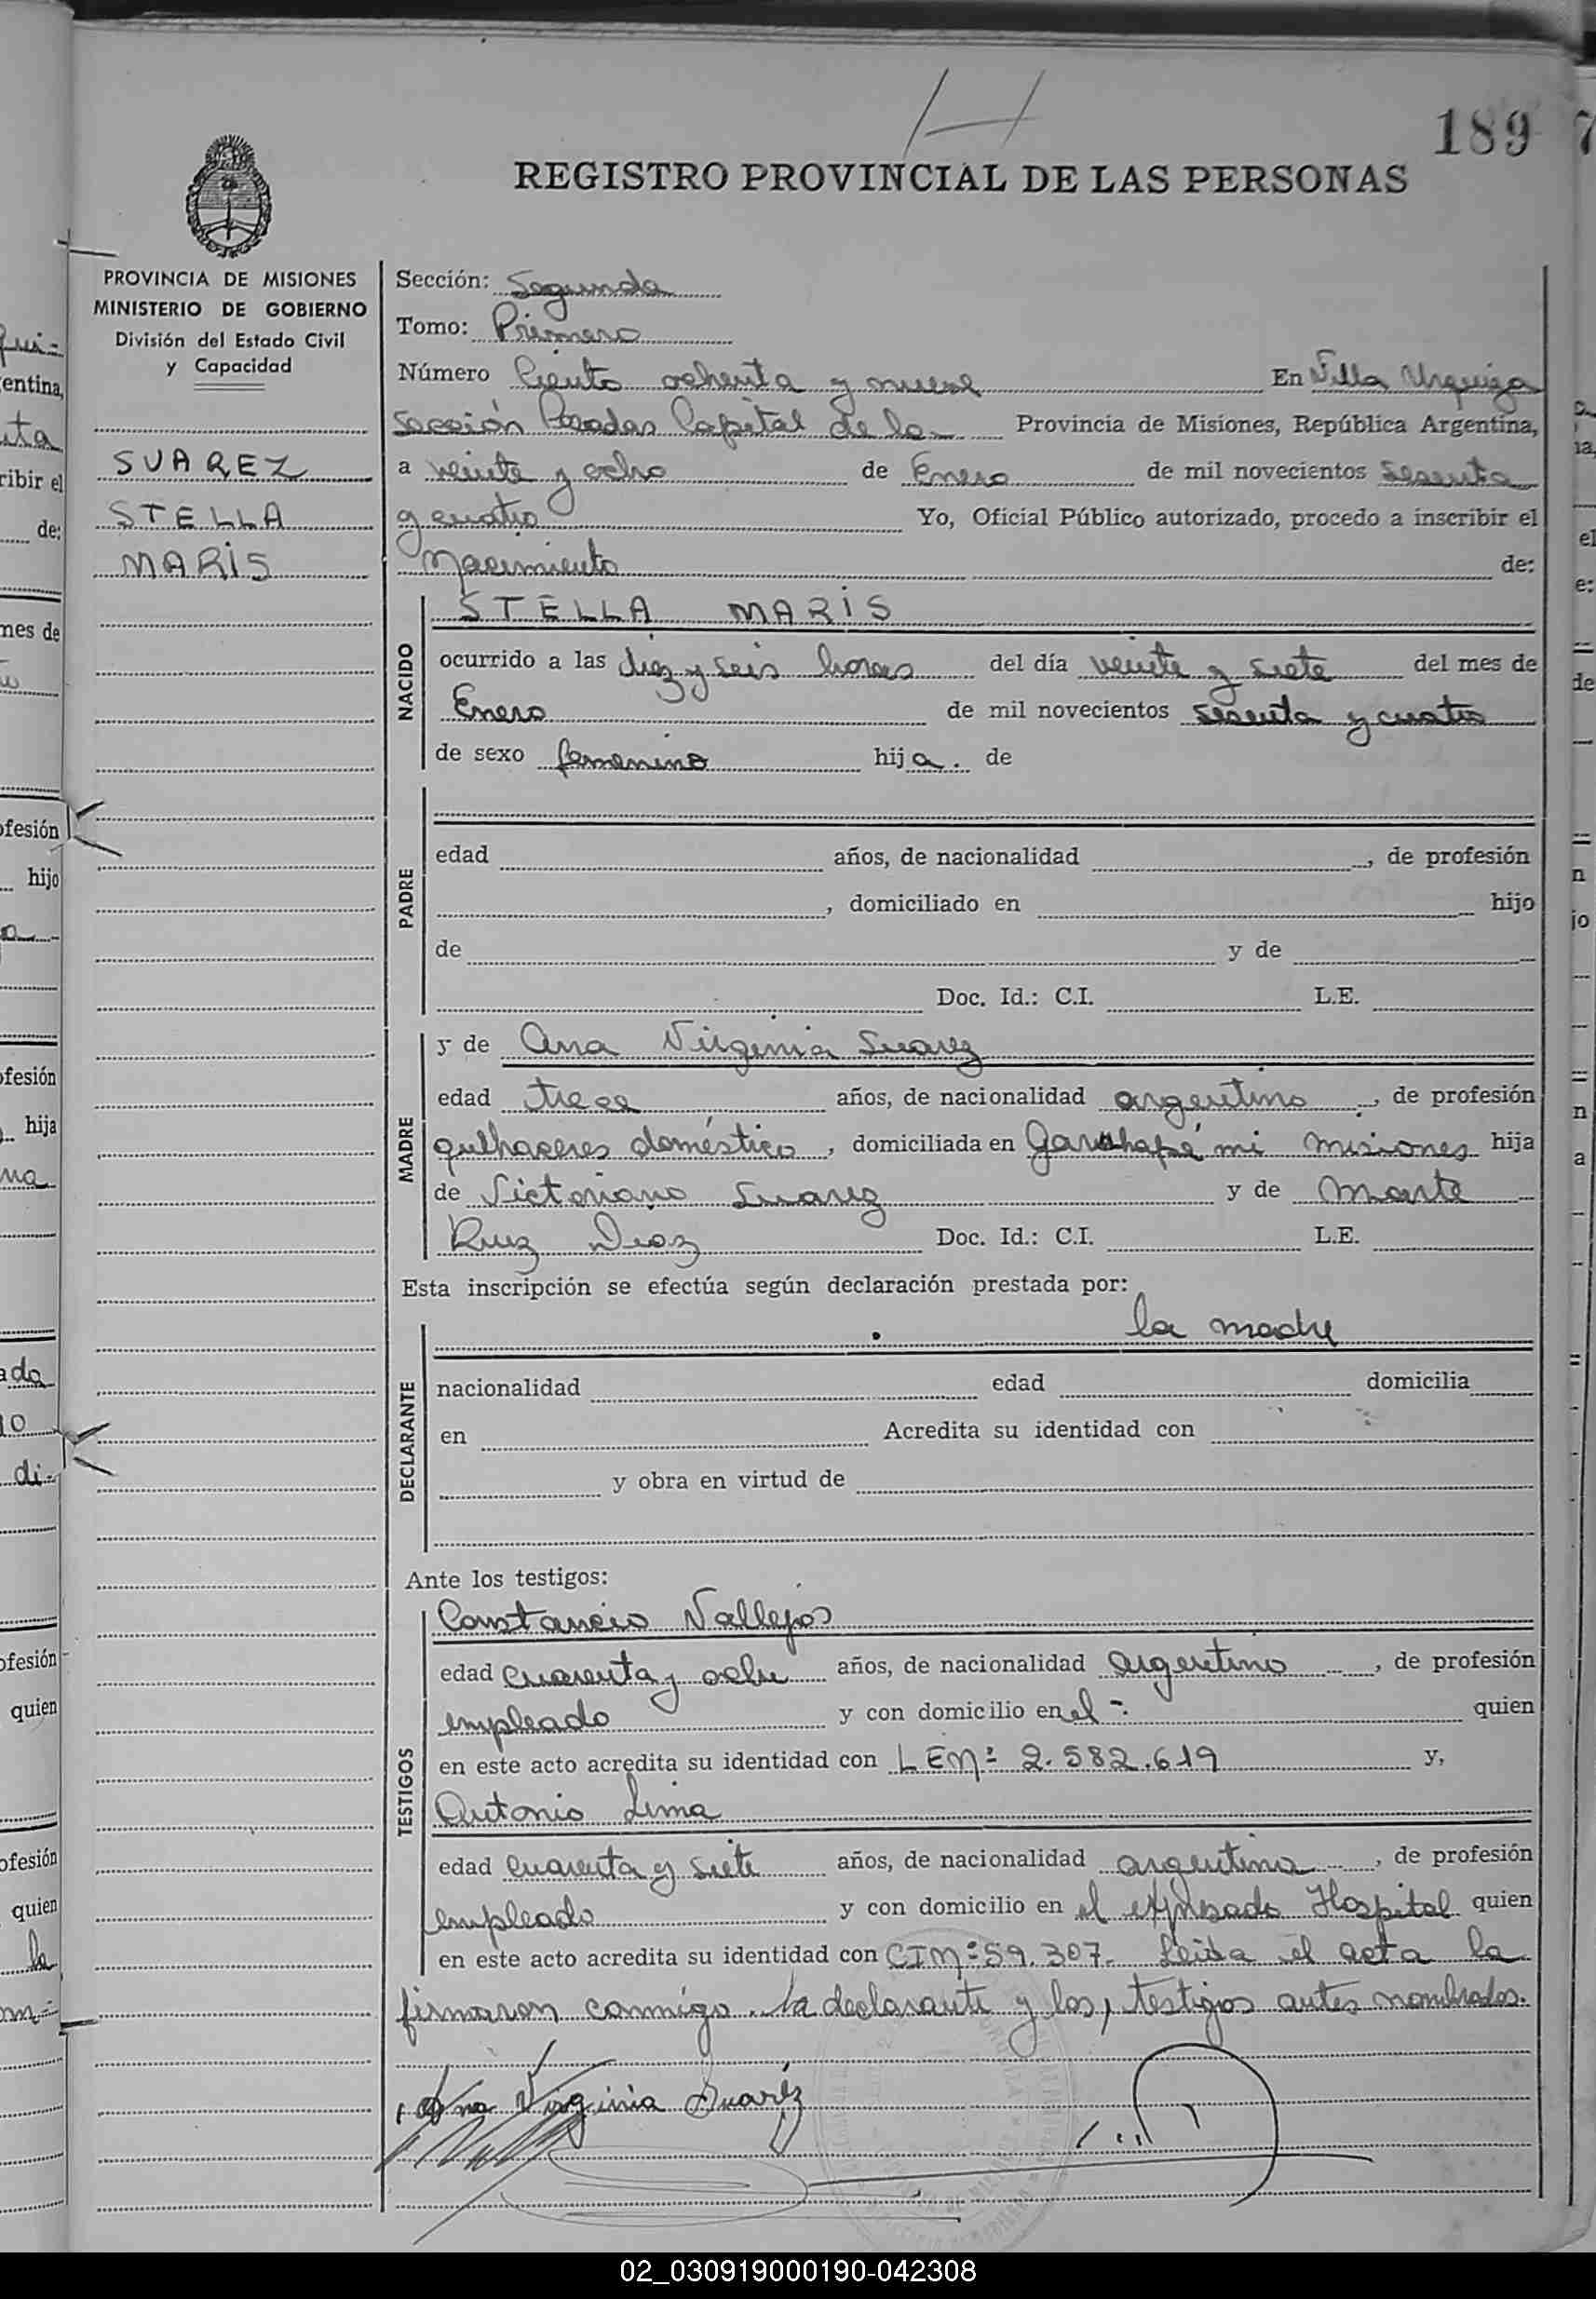 189
REGISTRO PROVINCIAL DE LAS PERSONAS
PROVINCIA DE MISIONES
MINISTERIO DE GOBIERNO
División del Estado Civil
y Capacidad
SUAREZ
STELLA
MARIS
Sección: Segunda
Tomo: Primero
Número Ciento ochenta y nueve En Villa Urquiza
sección Posadas Capital de la Provincia de Misiones, República Argentina,
a veinte y ocho de Enero de mil novecientos sesenta
y cuatro Yo, Oficial Público autorizado, procedo a inscribir el
Nacimiento de:
NACIDO
STELLA MARIS
ocurrido a las diez y seis horas del día veinte y siete del mes de
Enero de mil novecientos sesenta y cuatro
de sexo femenino hija. de
PADRE
edad años, de nacionalidad , de profesión
, domiciliado en hijo
de y de
Doc. Id.: C.I. L.E.
MADRE
y de Ana Virginia Suarez
edad trece años, de nacionalidad argentina, de profesión
qulhaceres doméstico, domiciliada en Garuhapé mi Misiones hija
de Victoriano Suarez y de Marta
Ruiz Diaz Doc. Id.: C.I. L.E.
Esta inscripción se efectúa según declaración prestada por:
DECLARANTE
la madre
nacionalidad edad domicilia
en Acredita su identidad con
y obra en virtud de
Ante los testigos:
TESTIGOS
Constancio Vallejos
edad cuarenta y ocho años, de nacionalidad argentino, de profesión
empleado y con domicilio en el - quien
en este acto acredita su identidad con LENº 2.582.619 y,
Antonio Lima
edad cuarenta y siete años, de nacionalidad argentina, de profesión
empleado y con domicilio en el expresado Hospital quien
en este acto acredita su identidad con CINº 59.307. Leida el acta la
firmaron conmigo la declarante y los testigos antes nombrados.
Ana Virginia Suarez
02_030919000190-042308